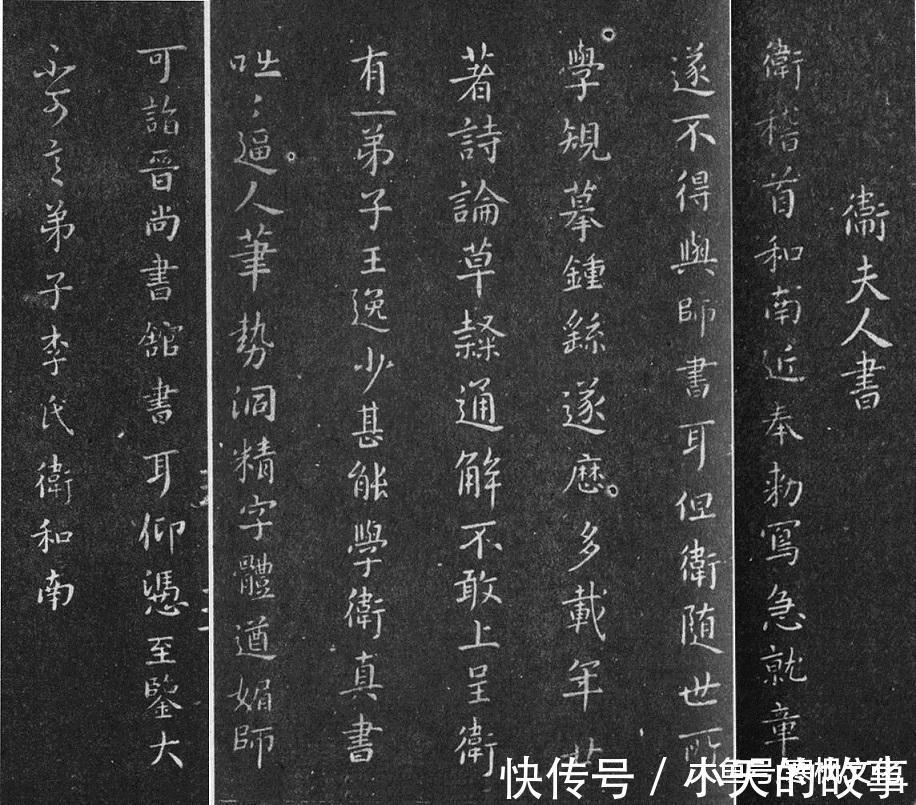 衞夫人書
衛稽首和南近奉勑寫急就章
遂不得與師書耳但衛随世所
學規摹鍾繇遂歷多載年廿
著詩論草隸通解不敢上呈衛
有一弟子王逸少甚能學衛真書
咄〻逼人筆勢洞精字體遒媚師
可詣晉尚書舘書耳仰憑至鑒大
不可言弟子李氏衛和南
快传号 / 小天的故事